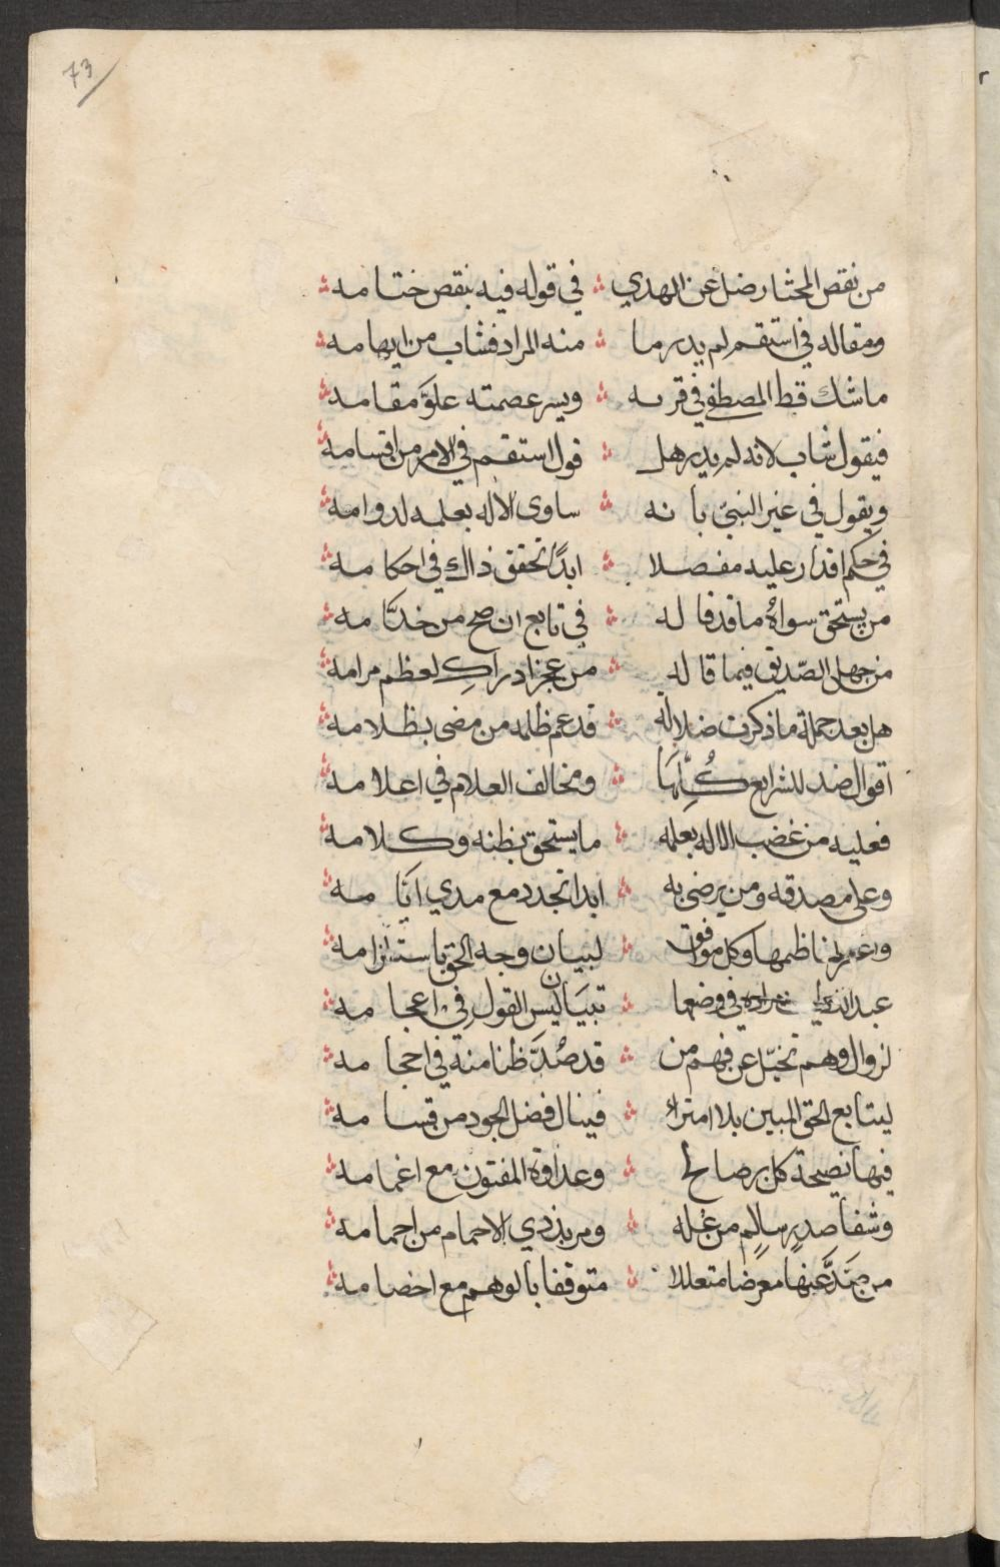 73
من نقص المختار ضل عن الهدي ∴ في قوله فيه بنقص ختامه ∴
ومقاله في استقم لم يدر ما ∴ منه المراد فشاب من ايهامه ∴
ماشك قط المصطفى في قربه ∴ ويسر عصمته علوّ مقامه ∴
فيقول شاب لانه لم يدر هل ∴ قول استقم في الامر من اقسامه ∴
ويقول في غير النبيّ بانه ∴ ساوى الاله بعلمه لدوامه ∴
في حكم اقدار عليه مفصلا ∴ ابدًا تحقق ذاك في احكامه ∴
من يستحق سواهُ ما قد قاله ∴ في تابع ان صح من خدّامه ∴
من جهل الصّديق فيما قاله ∴ من عجز ادراكِ لعظم مرامه ∴
هل بعد جملة ما ذكرت ضلالة ∴ قد عم ظلمه من مضى بظلامه ∴
اقوال ضد للشرايع كُلِّهَا ∴ وتخالف العلام في اعلامه ∴
فعليه من غضب الاله بعلمه ∴ ما يستحق بظنه وكلامه ∴
وعلى مصدقه ومن يرضى به ∴ ابدا تجدد مع مدي ايّامه ∴
ناظمها وكل موفق ∴ لبيان وجه الحق باستلزامه ∴
عبد في وضعها ∴ تبيان ليس القول في اعجامه ∴
لزوال وهم تخيّل عن فهم من ∴ قد صُدَّ ظنا منه في احجامه ∴
ليتابع الحق المبين بلا امتراء ∴ فينال فضل الجود من قسامه ∴
فيها نصيحة كل بر صالح ∴ وعداوة المفتون مع اغمامه ∴
وشفا صدرٍ سالمٍ من غله ∴ ومريد ذي الاحمام من احمامه ∴
من صَدَّ عنها معرضا متعللا ∴ متوقفا بالوهم مع اخصامه ∴